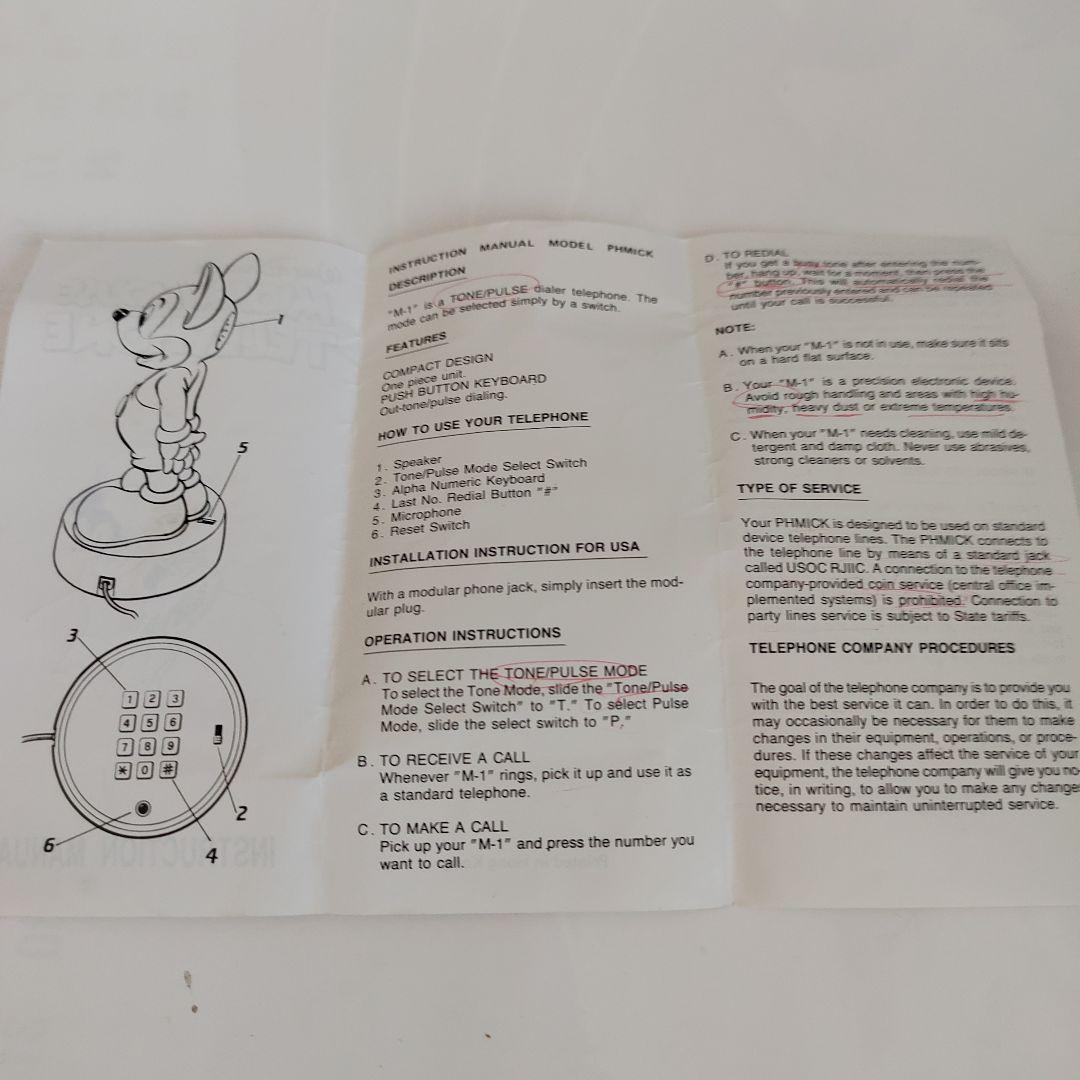 1
5
3
1 2 3
4 5 6
7 8 9
* 0 #
2
6
4
INSTRUCTION MANUAL MODEL PHMICK
DESCRIPTION
"M-1" is a TONE/PULSE dialer telephone. The
mode can be selected simply by a switch.
FEATURES
COMPACT DESIGN
One piece unit.
PUSH BUTTON KEYBOARD
Out-tone/pulse dialing.
HOW TO USE YOUR TELEPHONE
1. Speaker
2. Tone/Pulse Mode Select Switch
3. Alpha Numeric Keyboard
4. Last No. Redial Button "#"
5. Microphone
6. Reset Switch
INSTALLATION INSTRUCTION FOR USA
With a modular phone jack, simply insert the mod-
ular plug.
OPERATION INSTRUCTIONS
A. TO SELECT THE TONE/PULSE MODE
To select the Tone Mode, slide the "Tone/Pulse
Mode Select Switch" to "T." To select Pulse
Mode, slide the select switch to "P,"
B. TO RECEIVE A CALL
Whenever "M-1" rings, pick it up and use it as
a standard telephone.
C. TO MAKE A CALL
Pick up your "M-1" and press the number you
want to call.
D. TO REDIAL
If you get a busy tone after entering the num-
ber, hang up, wait for a moment, then press the
"#" button. This will automatically redial the
number previously entered and can be repeated
until your call is successful.
NOTE:
A. When your "M-1" is not in use, make sure it sits
on a hard flat surface.
B. Your "M-1" is a precision electronic device.
Avoid rough handling and areas with high hu-
midity, heavy dust or extreme temperatures.
C. When your "M-1" needs cleaning, use mild de-
tergent and damp cloth. Never use abrasives,
strong cleaners or solvents.
TYPE OF SERVICE
Your PHMICK is designed to be used on standard
device telephone lines. The PHMICK connects to
the telephone line by means of a standard jack
called USOC RJIIC. A connection to the telephone
company-provided coin service (central office im-
plemented systems) is prohibited. Connection to
party lines service is subject to State tariffs.
TELEPHONE COMPANY PROCEDURES
The goal of the telephone company is to provide you
with the best service it can. In order to do this, it
may occasionally be necessary for them to make
changes in their equipment, operations, or proce-
dures. If these changes affect the service of your
equipment, the telephone company will give you no-
tice, in writing, to allow you to make any changes
necessary to maintain uninterrupted service.
INSTRUCTION MANUA